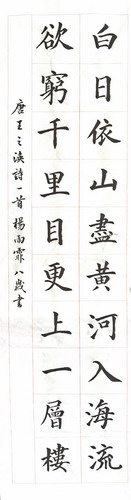 白日依山盡黃河入海流
欲窮千里目更上一層樓
唐王之渙詩一首楊雨霏八歲書